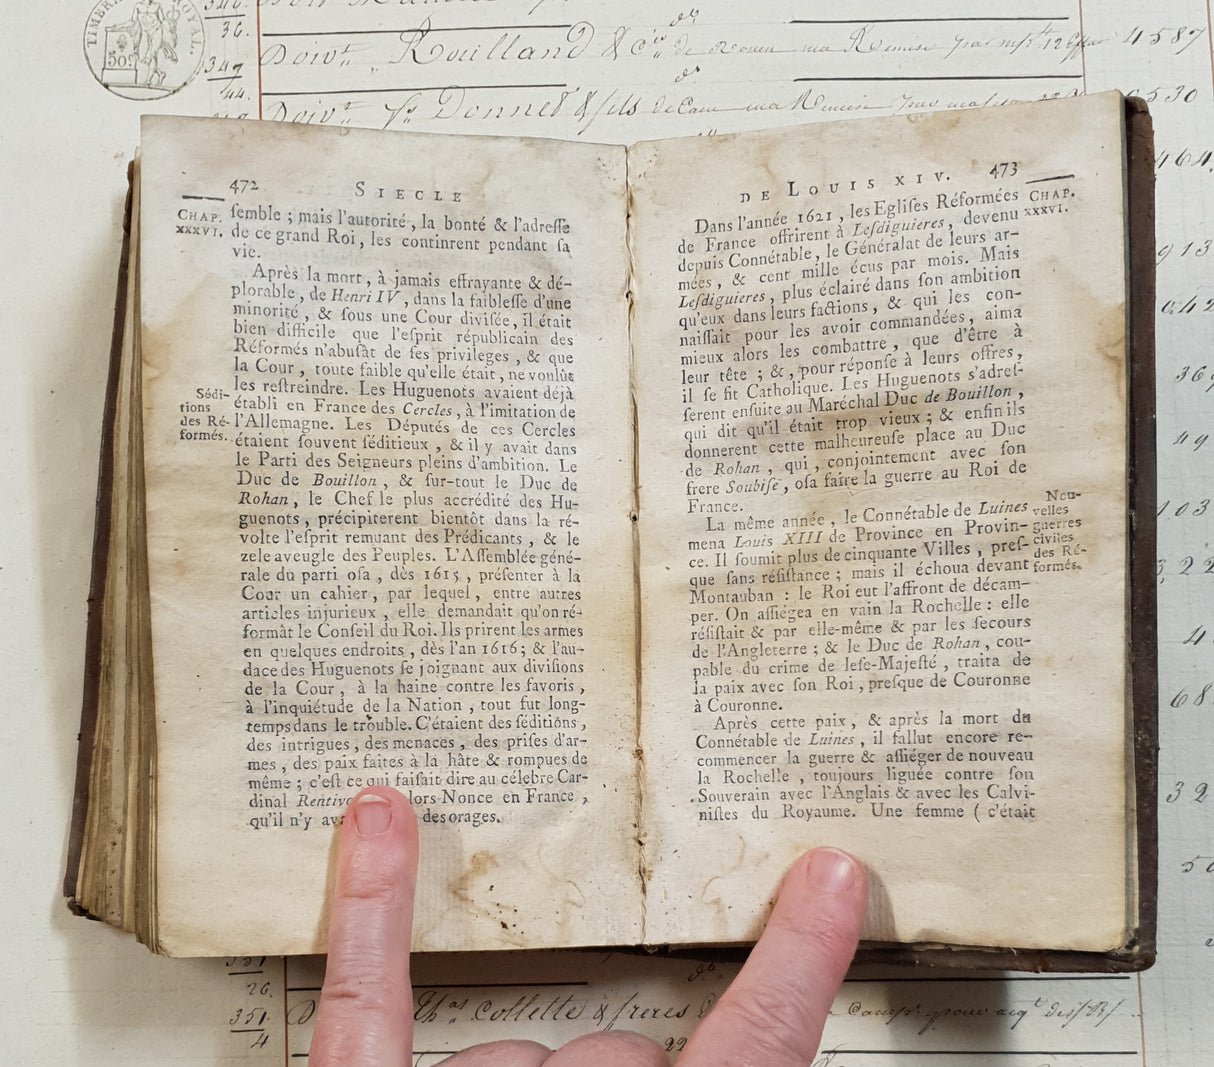 TIMBRE ROYAL.
309
36.
347
44.
Doiv.t Rouilland & C.ie de Rouen ma Remise 4587
do
Doiv.t Donnet & fils de Caen ma Remise 6530
472
SIECLE
CHAP. XXXVI.
ſemble ; mais l'autorité, la bonté & l'adreſſe
de ce grand Roi, les continrent pendant ſa
vie.
Après la mort, à jamais effrayante & dé-
plorable, de Henri IV, dans la faibleſſe d'une
minorité, & ſous une Cour diviſée, il était
bien difficile que l'eſprit républicain des
Réformés n'abuſât de ſes privileges, & que
la Cour, toute faible qu'elle était, ne voulût
les reſtreindre. Les Huguenots avaient déjà
Sédi-
tions
des Ré-
formés.
établi en France des Cercles, à l'imitation de
l'Allemagne. Les Députés de ces Cercles
étaient ſouvent ſéditieux, & il y avait dans
le Parti des Seigneurs pleins d'ambition. Le
Duc de Bouillon, & ſur-tout le Duc de
Rohan, le Chef le plus accrédité des Hu-
guenots, précipiterent bientôt dans la ré-
volte l'eſprit remuant des Prédicants, & le
zele aveugle des Peuples. L'Aſſemblée géné-
rale du parti oſa, dès 1615, préſenter à la
Cour un cahier, par lequel, entre autres
articles injurieux, elle demandait qu'on ré-
formât le Conſeil du Roi. Ils prirent les armes
en quelques endroits, dès l'an 1616; & l'au-
dace des Huguenots ſe joignant aux diviſions
de la Cour, à la haine contre les favoris,
à l'inquiétude de la Nation, tout fut long-
temps dans le trouble. C'étaient des ſéditiôns,
des intrigues, des menaces, des priſes d'ar-
mes, des paix faites à la hâte & rompues de
même ; c'eſt ce qui faiſait dire au célebre Car-
dinal Rentivo lors Nonce en France,
qu'il n'y ava des orages.
473
DE LOUIS XIV.
CHAP. XXXVI.
Dans l'année 1621, les Egliſes Réformées
de France offrirent à Leſdiguieres, devenu
depuis Connétable, le Généralat de leurs ar-
mées, & cent mille écus par mois. Mais
Leſdiguieres, plus éclairé dans ſon ambition
qu'eux dans leurs factions, & qui les con-
naiſſait pour les avoir commandées, aima
mieux alors les combattre, que d'être à
leur tête ; &, pour réponſe à leurs offres,
il ſe fit Catholique. Les Huguenots s'adreſ-
ſerent enſuite au Maréchal Duc de Bouillon,
qui dit qu'il était trop vieux ; & enfin ils
donnerent cette malheureuſe place au Duc
de Rohan, qui, conjointement avec ſon
frere Soubiſe, oſa faire la guerre au Roi de
France.
Nou-
velles
guerres
civiles
des Ré-
formés.
La même année, le Connétable de Luines
mena Louis XIII de Province en Provin-
ce. Il ſoumit plus de cinquante Villes, preſ-
que ſans réſiſtance ; mais il échoua devant
Montauban : le Roi eut l'affront de décam-
per. On aſſiégea en vain la Rochelle : elle
réſiſtait & par elle-même & par les ſecours
de l'Angleterre ; & le Duc de Rohan, cou-
pable du crime de leſe-Majeſté, traita de
la paix avec ſon Roi, preſque de Couronne
à Couronne.
Après cette paix, & après la mort du
Connétable de Luines, il fallut encore re-
commencer la guerre & aſſiéger de nouveau
la Rochelle, toujours liguée contre ſon
Souverain avec l'Anglais & avec les Calvi-
niſtes du Royaume. Une femme ( c'était
464
913
042
369
49
103
322
4
68
32
50
26.
351
4
Th.as Collette & freres
22